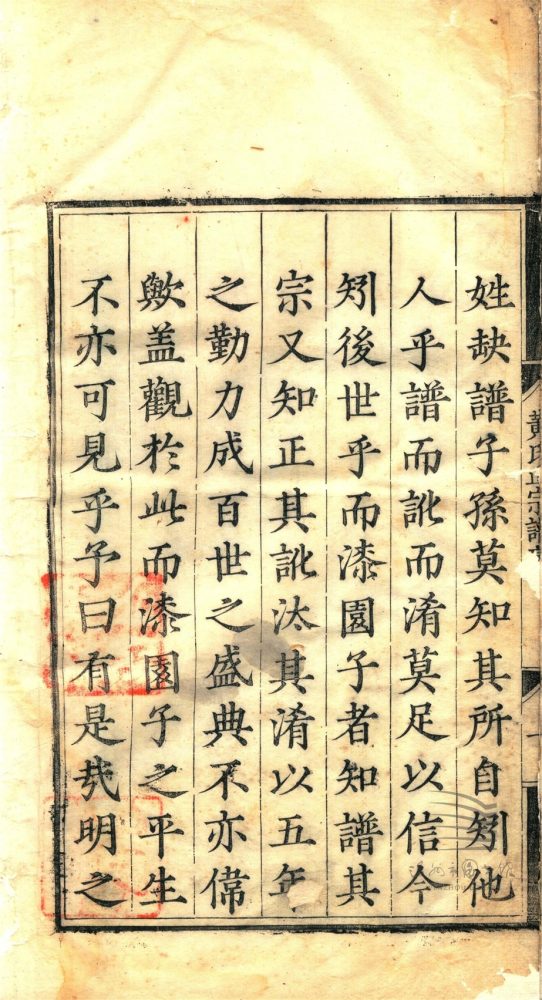 姓缺譜子孫莫知其所自矧他
人乎譜而訛而淆莫足以信今
矧後世乎而漆園子者知譜其
宗又知正其訛汰其淆以五年
之勤力成百世之盛典不亦偉
歟盖觀於此而漆園子之平生
不亦可見乎予曰有是㢤明之